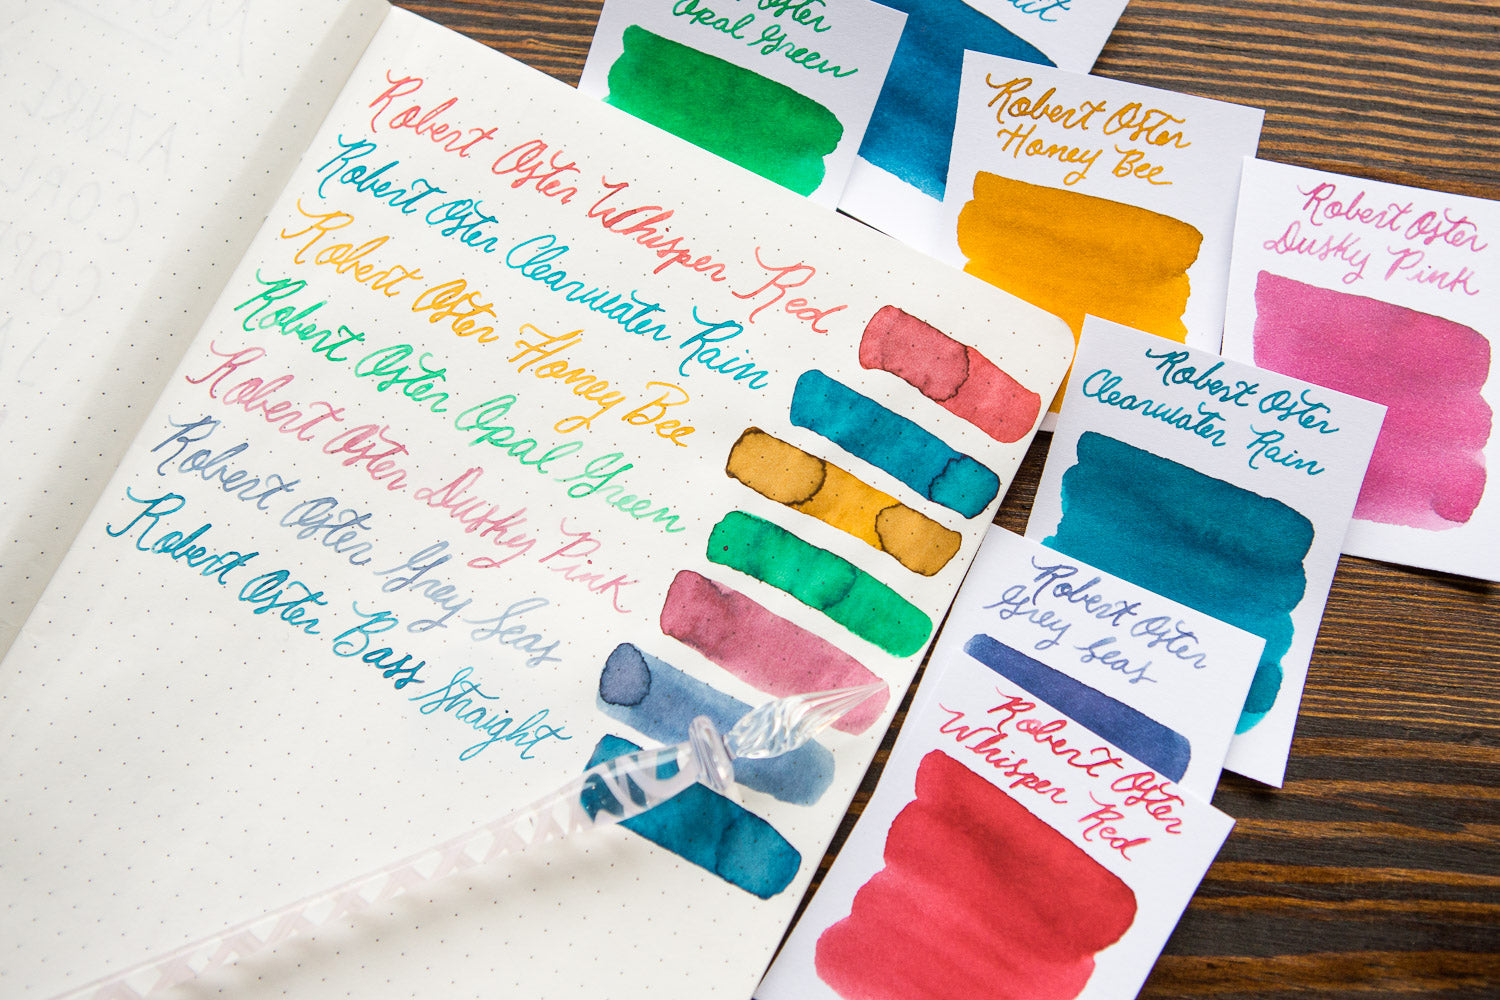 Robert Oster Whisper Red
Robert Oster Clearwater Rain
Robert Oster Honey Bee
Robert Oster Opal Green
Robert Oster Dusky Pink
Robert Oster Grey Seas
Robert Oster Bass Straight
Oster
Opal Green
Robert Oster
Honey Bee
Robert Oster
Dusky Pink
Robert Oster
Clearwater Rain
Robert Oster
Grey Seas
Robert Oster
Whisper Red
AZURE